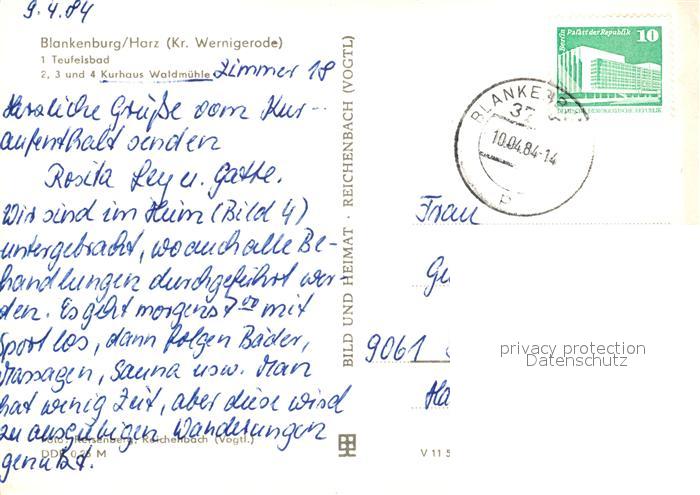 9.4.84
Blankenburg/Harz (Kr. Wernigerode)
1 Teufelsbad
2, 3 und 4 Kurhaus Waldmühle Zimmer 18
Herzliche Grüße vom Kur-
aufenthalt senden
Rosita Ley u. Gatte.
Wir sind im Heim (Bild 4)
untergebracht, wo auch alle Be-
handlungen durchgeführt wer
den. Es geht morgens 7 00 mit
Sport los, dann folgen Bäder,
Massagen, Sauna usw. Man
hat wenig Zeit, aber diese wird
zu ausgiebigen Wanderungen
genutzt.
Foto: Reisenberg, Reichenbach (Vogtl.)
DDR 0,25 M
BILD UND HEIMAT · REICHENBACH (VOGTL)
V 11 5
Berlin Palast der Republik
10
DEUTSCHE DEMOKRATISCHE REPUBLIK
BLANKE
37
10.04.84-14
Frau
Gu
9061
Ha
privacy protection
Datenschutz